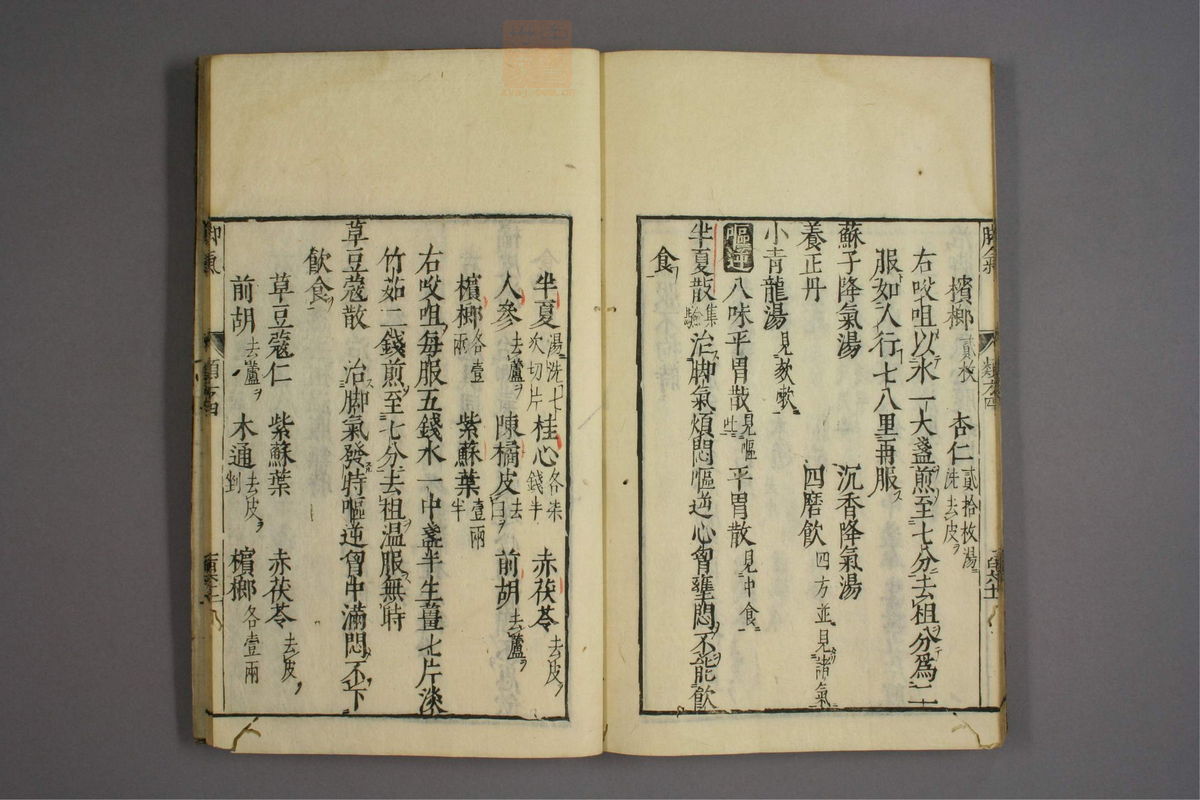 檳榔貳枚 杏仁貳拾枚湯洗去皮ヲ
右㕮咀以水一大盞煎至七分去柤分爲二
服如人行七八里再服
蘇子降氣湯 沉香降氣湯
養正丹 四磨飲四方並見諸氣
小青龍湯見欬嗽
嘔逆 八味平胃散見嘔吐 平胃散見中食
半夏散集驗 治脚氣煩悶嘔逆心胷壅悶不能飲
食
半夏湯洗七次切片 桂心各柒錢半 赤茯苓去皮
人參去蘆 陳橘皮去白 前胡去蘆
檳榔各壹兩 紫蘇葉壹兩半
右㕮咀每服五錢水一中盞半生薑七片淡
竹茹二錢煎至七分去柤温服無時
草豆蔻散 治脚氣發時嘔逆胷中滿悶不下
飲食
草豆蔻仁 紫蘇葉 赤茯苓去皮
前胡去蘆 木通去皮剉 檳榔各壹兩